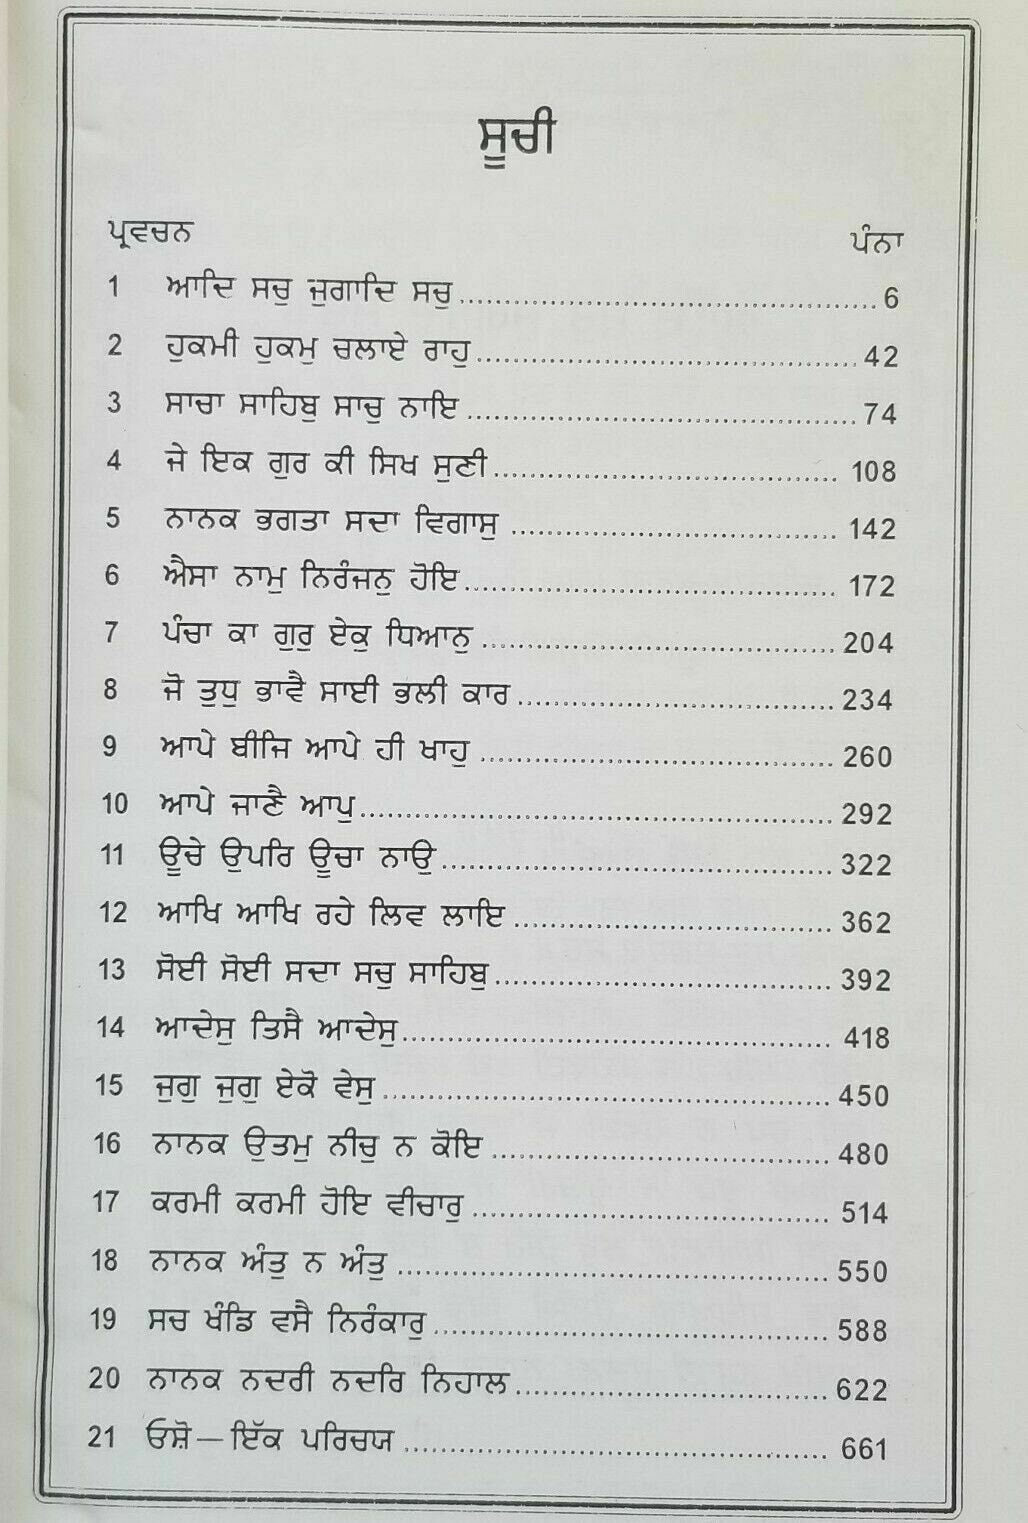 ਸੂਚੀ
ਪ੍ਰਵਚਨ ਪੰਨਾ
1 ਆਦਿ ਸਚੁ ਜੁਗਾਦਿ ਸਚੁ 6
2 ਹੁਕਮੀ ਹੁਕਮੁ ਚਲਾਏ ਰਾਹੁ 42
3 ਸਾਚਾ ਸਾਹਿਬੁ ਸਾਚੁ ਨਾਇ 74
4 ਜੇ ਇਕ ਗੁਰ ਕੀ ਸਿਖ ਸੁਣੀ 108
5 ਨਾਨਕ ਭਗਤਾ ਸਦਾ ਵਿਗਾਸੁ 142
6 ਐਸਾ ਨਾਮੁ ਨਿਰੰਜਨੁ ਹੋਇ 172
7 ਪੰਚਾ ਕਾ ਗੁਰੁ ਏਕੁ ਧਿਆਨੁ 204
8 ਜੋ ਤੁਧੁ ਭਾਵੈ ਸਾਈ ਭਲੀ ਕਾਰ 234
9 ਆਪੇ ਬੀਜਿ ਆਪੇ ਹੀ ਖਾਹੁ 260
10 ਆਪੇ ਜਾਣੈ ਆਪੁ 292
11 ਊਚੇ ਉਪਰਿ ਊਚਾ ਨਾਉ 322
12 ਆਖਿ ਆਖਿ ਰਹੇ ਲਿਵ ਲਾਇ 362
13 ਸੋਈ ਸੋਈ ਸਦਾ ਸਚੁ ਸਾਹਿਬੁ 392
14 ਆਦੇਸੁ ਤਿਸੈ ਆਦੇਸੁ 418
15 ਜੁਗੁ ਜੁਗੁ ਏਕੋ ਵੇਸੁ 450
16 ਨਾਨਕ ਉਤਮੁ ਨੀਚੁ ਨ ਕੋਇ 480
17 ਕਰਮੀ ਕਰਮੀ ਹੋਇ ਵੀਚਾਰੁ 514
18 ਨਾਨਕ ਅੰਤੁ ਨ ਅੰਤੁ 550
19 ਸਚ ਖੰਡਿ ਵਸੈ ਨਿਰੰਕਾਰੁ 588
20 ਨਾਨਕ ਨਦਰੀ ਨਦਰਿ ਨਿਹਾਲ 622
21 ਓਸ਼ੋ — ਇੱਕ ਪਰਿਚਯ 661